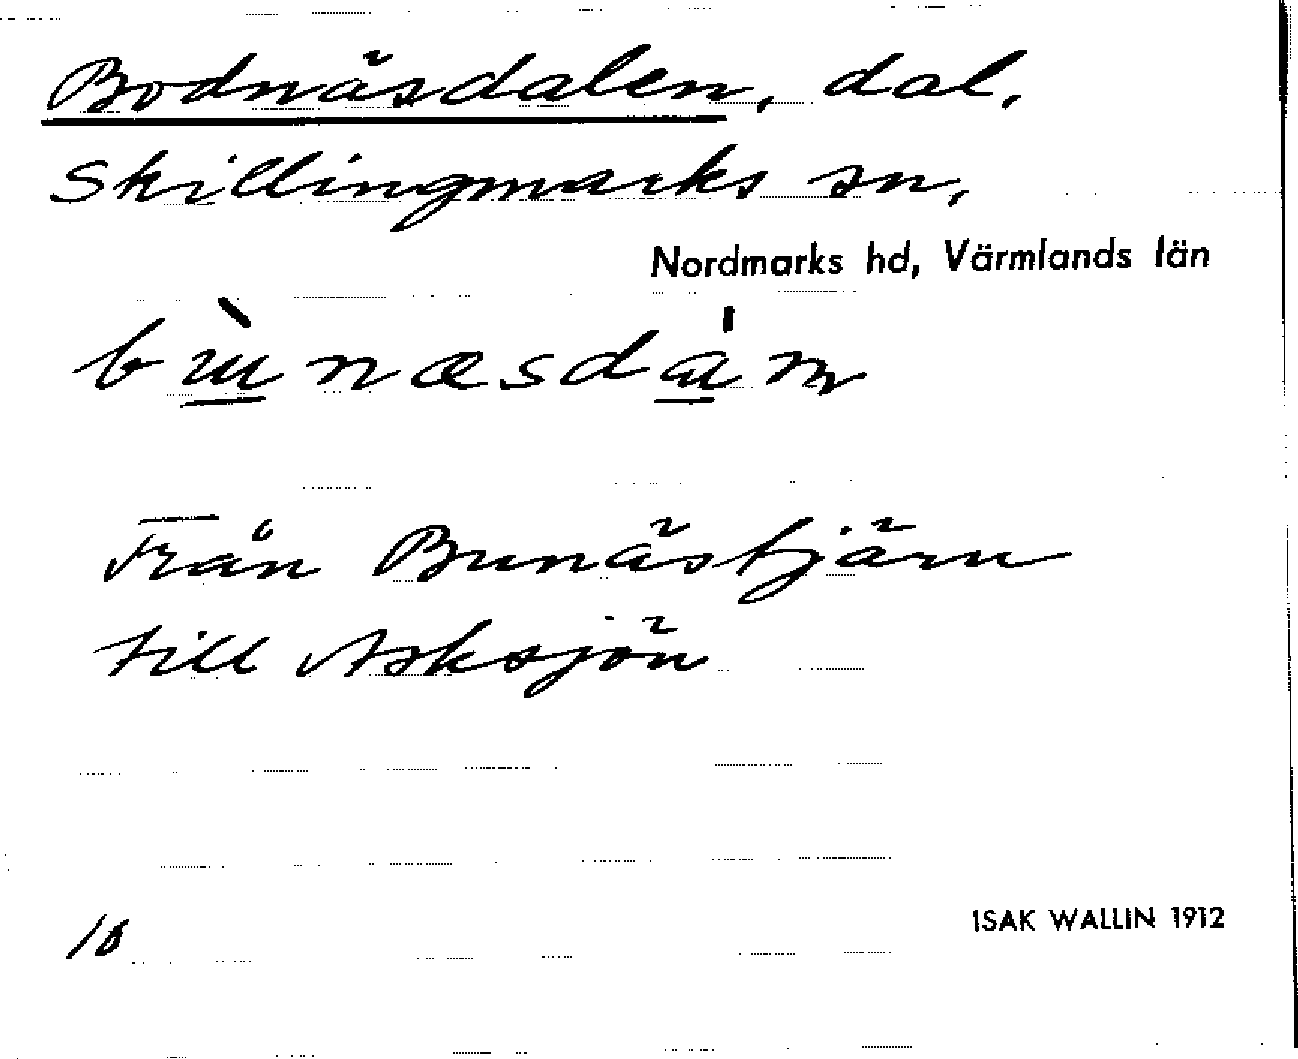 Bodnäsdalen, dal,
Skillingmarks sn,
Nordmarks hd, Värmlands län
Från Bunästjärn
till Asksjön
10
ISAK WALLIN 1912